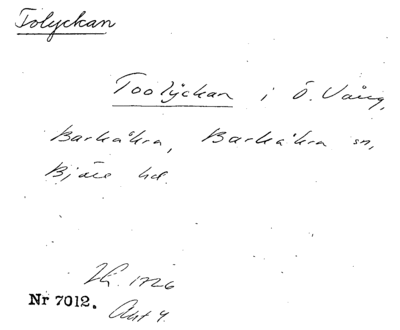 Tolyckan
Toolyckan i Ö. Vång,
Barkåkra, Barkåkra sn,
Bjäre hd.
1726
Nr 7012. Akt 4.